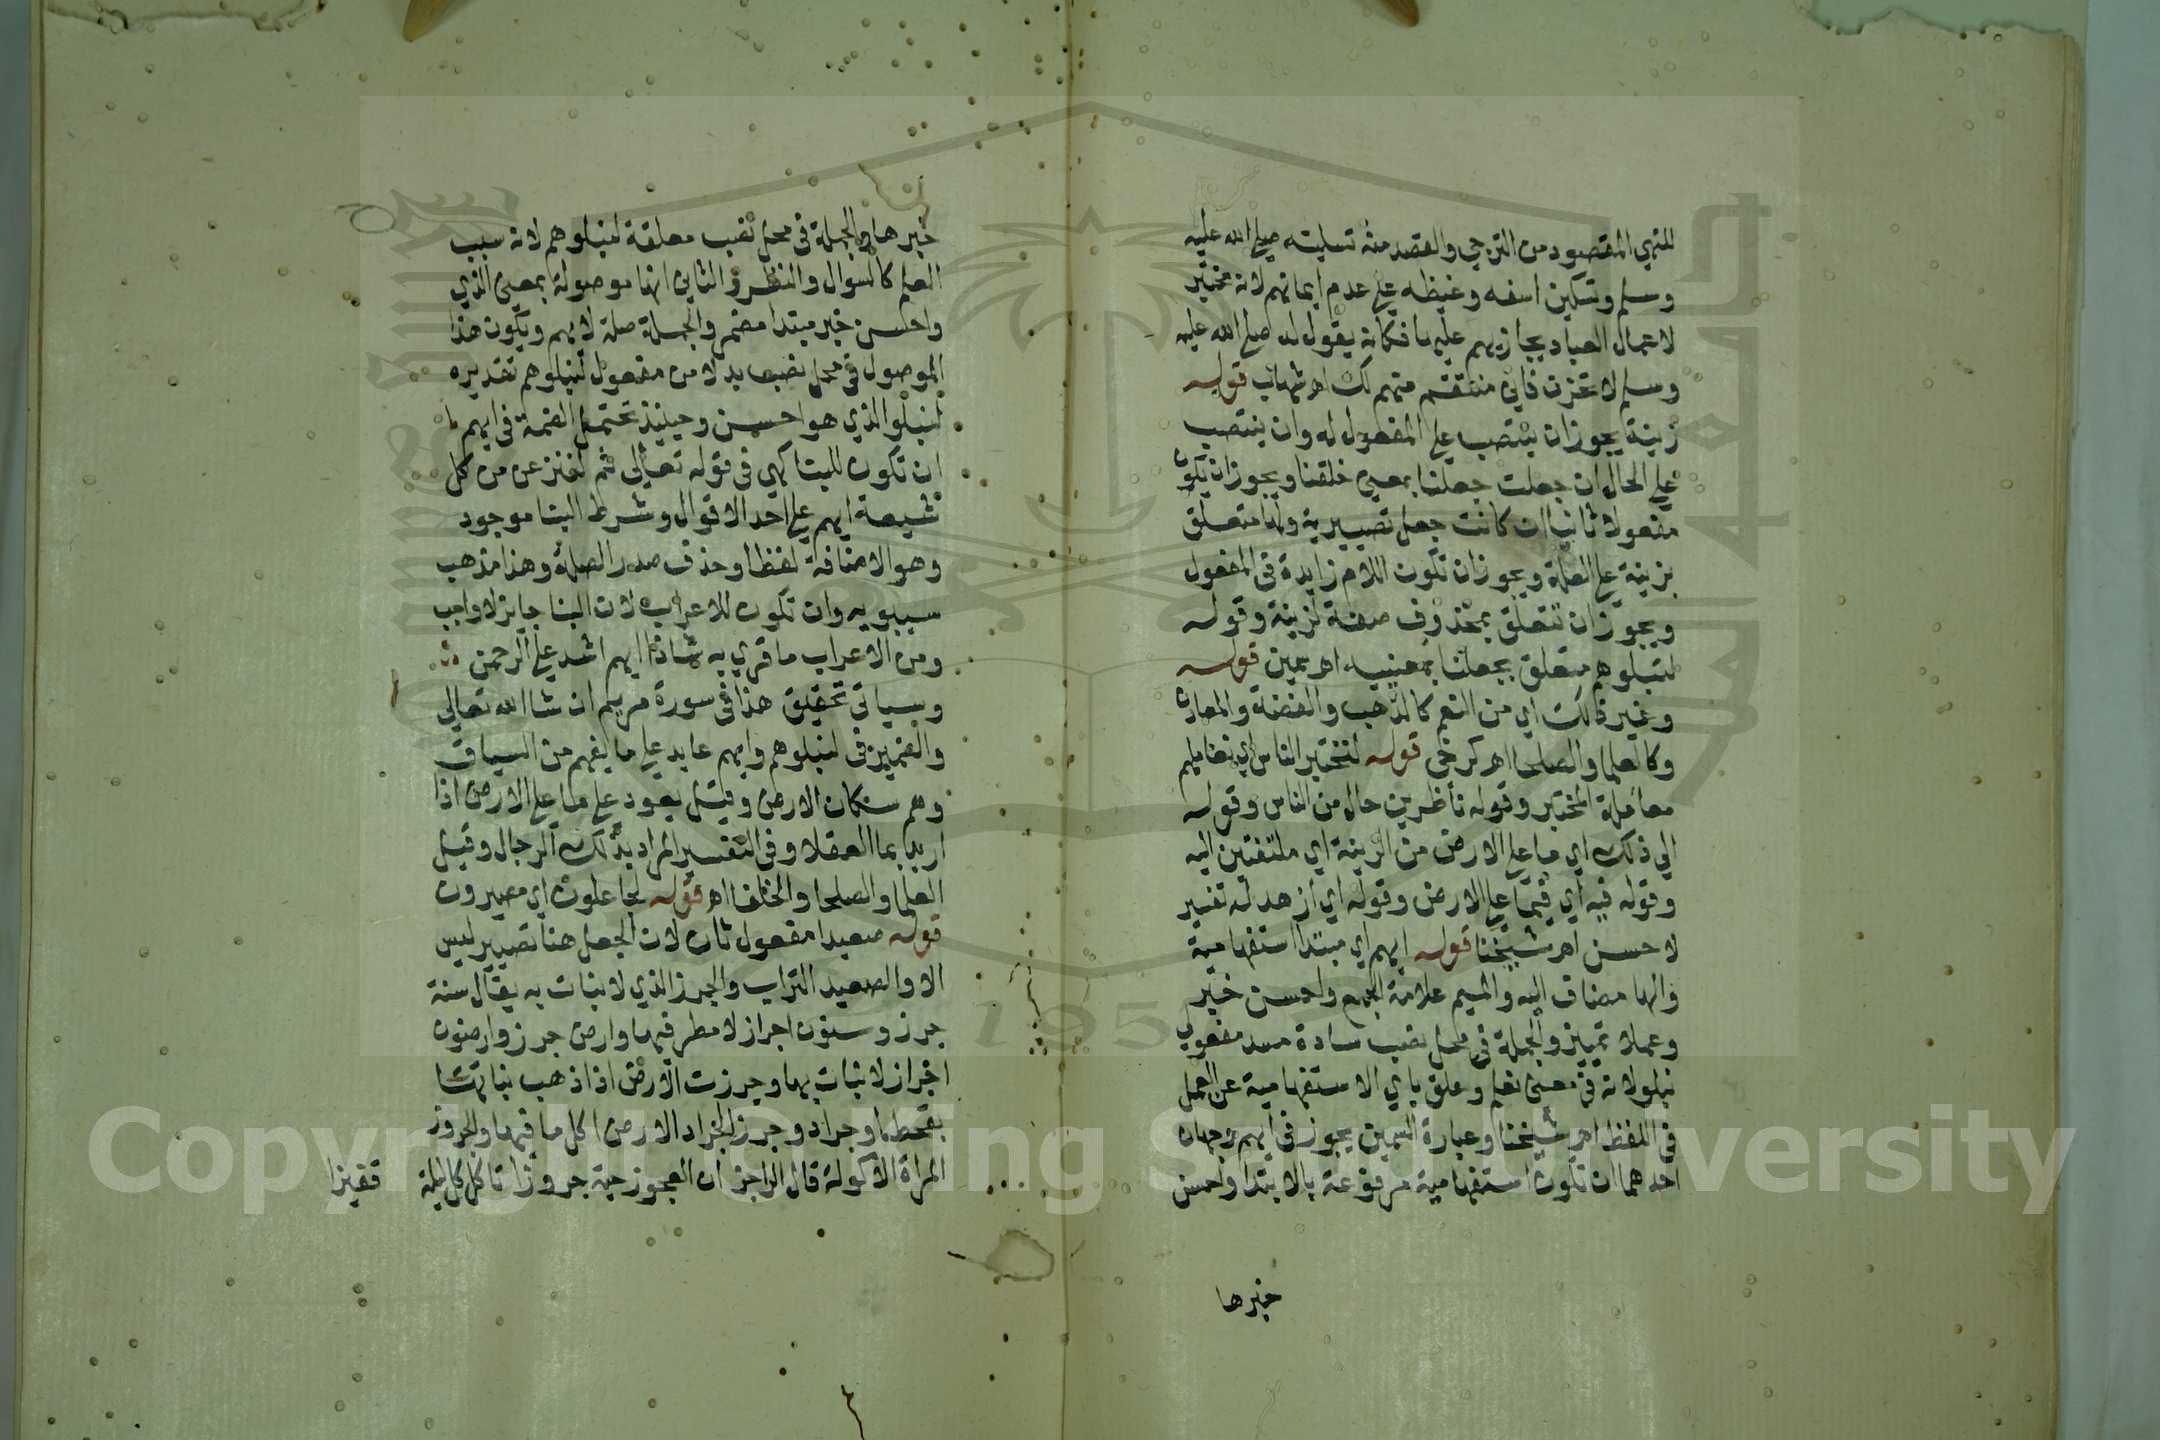 للنهي المقصود من الترجي والقصد منه تسليته صلي الله عليه
وسلم وتسكين اسفه وغيظه علي عدم ايمانهم لانه مختبر
لاعمال العباد يجازيهم عليها فكانه يقول له صلي الله عليه
وسلم لا تحزن فاني منتقم منهم لك اهر شهاب قوله
زينة يجوز ان ينتصب علي المفعول له وان ينتصب
علي الحال ان جعلت جعلنا بمعني خلقنا ويجوز ان تكون
مفعولا ثانيا ان كانت جعل تصييرية ولها متعلق
بزينة علي العلة ويجوز ان تكون اللام زايدة في المفعول
ويجوز ان تتعلق بمحذوف صفة لزينة وقوله
لنبلوهم متعلق بجعلنا بمعنييه اهر سمين قوله
وغير ذلك اي من النعم كالذهب والفضة والمعادن
وكالعلما والصلحا اهر كرخي قوله لنختبر الناس اي نعاملهم
معاملة المختبر وقوله ناظرين حال من الناس وقوله
الي ذلك اي ما علي الارض من الزينة اي ملتفتين اليه
وقوله فيه اي فيما علي الارض وقوله اي ازهد له تفسير
لاحسن اهر شيخنا قوله ايهم اي مبتدا استفهامية
والها مضاف اليه والميم علامة الجمع واحسن خبر
وعملا تمييز والجملة في محل نصب سادة مسد مفعولي
نبلو لانه في معني نعلم وعلق باي الاستفهامية عن العمل
في اللفظ اهر شيخنا وعبارة السمين يجوز في ايهم وجهان
احدهما ان تكون استفهامية مرفوعة بالابتدا واحسن
خبرها
خبرها والجملة في محل نصب معلقة لنبلوهم لانه سبب
العلم كالسوال والنظر والثاني انها موصولة بمعني الذي
واحسن خبر مبتدا مضمر والجملة صلة لايهم ويكون هذا
الموصول في محل نصب بدلا من مفعول لنبلوهم تقديره
لنبلو الذي هو احسن وحينيذ تحتمل الضمة في ايهم
ان تكون للبنا كهي في قوله تعالي ثم لننزعن من كل
شيعة ايهم علي احد الاقوال وشرط البنا موجود
وهو الاضافة لفظا وحذف صدر الصلة وهذا مذهب
سيبويه وان تكون للاعراب لان البنا جايز لا واجب
ومن الاعراب ما قري به شاذا ايهم اشد علي الرحمن
وسياتي تحقيق هذا في سورة مريم ان شا الله تعالي
والضمير في لنبلوهم وايهم عايد علي ما يفهم من السياق
وهم سكان الارض وقيل يعود علي ما علي الارض اذا
اريد بما العقلا وفي التفسير المراد بذلك الرجال وقيل
العلما والصلحا والخلفا اهر قوله لجاعلون اي مصيرون
قوله صعيدا مفعول ثان لان الجعل هنا تصيير ليس
الا والصعيد التراب والجرز الذي لا نبات به يقال سنة
جرز وسنون اجراز لا مطر فيها وارض جرز وارضون
اجراز لا نبات بها وجرزت الارض اذا ذهب نباتها
بقحط او جراد وجرز الجراد الارض اكل ما فيها والجروز
المراة الاكولة قال الراجز ان العجوز حية جروزا تاكل كل ليلة قفيزا